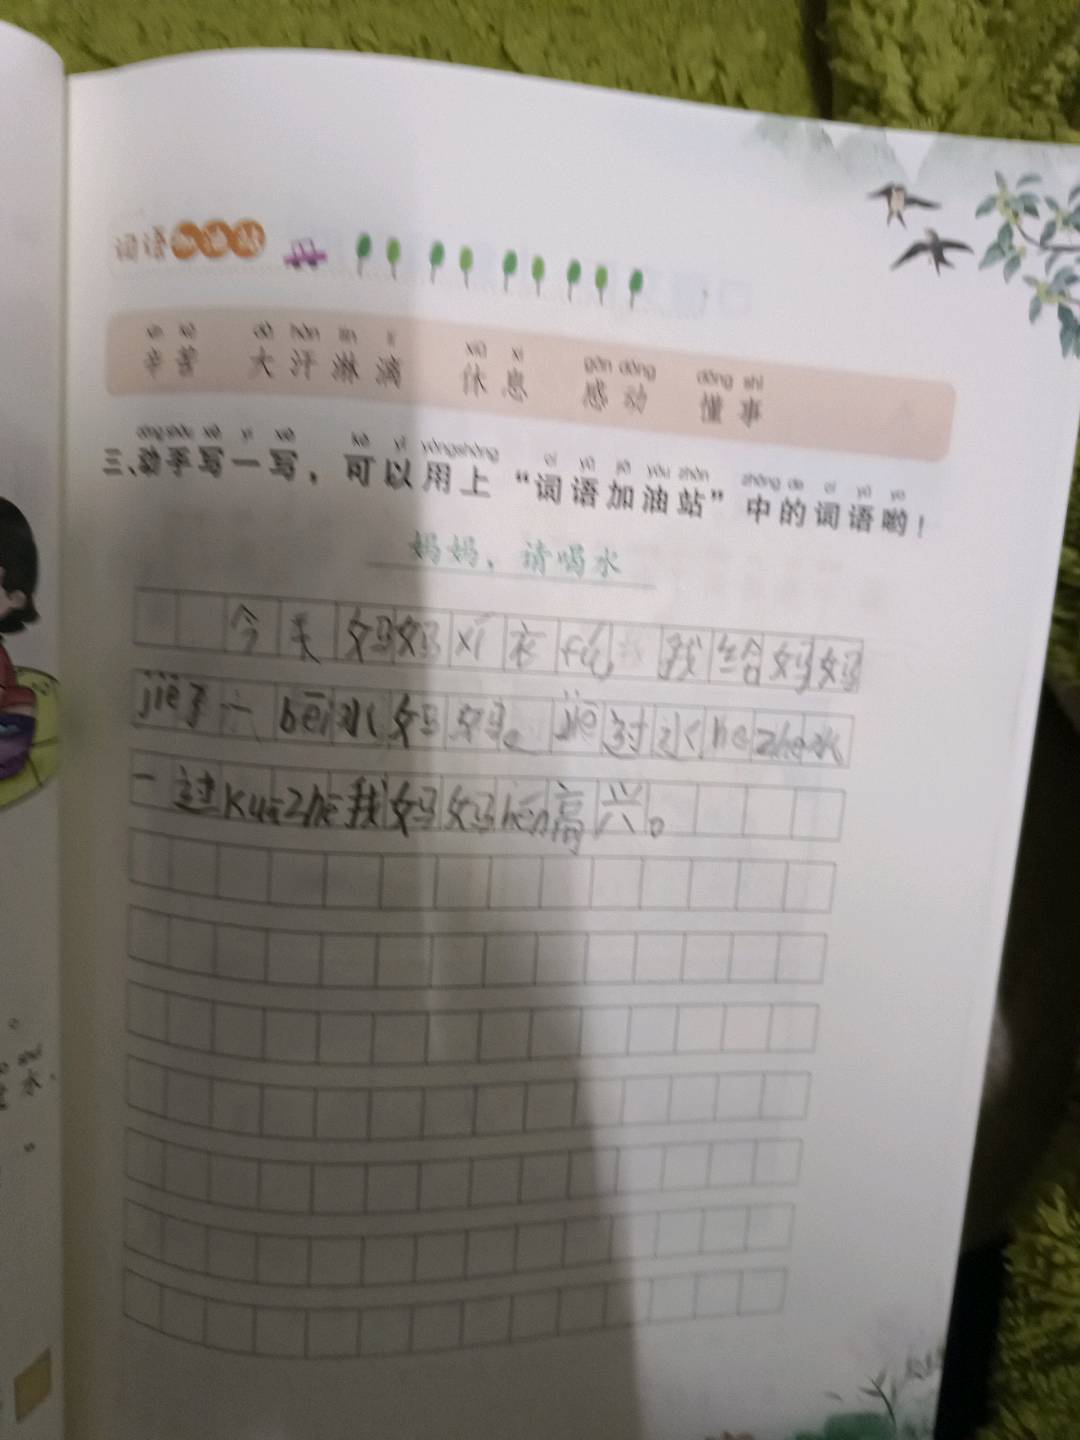 词语加油站
xīn kǔ dà hàn lín lí xiū xi gǎn dòng dǒng shì
辛苦 大汗淋漓 休息 感动 懂事
dòngshǒu xiě yì xiě kě yǐ yòngshàng cí yǔ jiā yóu zhàn zhōng de cí yǔ yo
三、动手写一写，可以用上“词语加油站”中的词语哟！
妈妈，请喝水
今天妈妈xǐ衣fú，我给妈妈
jiē了一bēi水妈妈。jiē过水hezhe水
一过kuāzhe我妈妈hěn高兴。
shuǐ
水